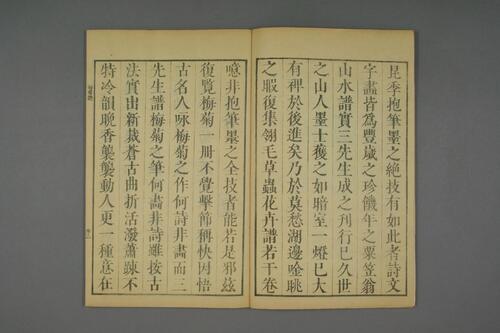 昆季抱筆墨之絶技有如此者詩文
字畵皆為豐嵗之珍饑年之粟笠翁
山水譜實三先生成之刋行已久世
之山人墨士獲之如暗室一燈已大
有裨於後進矣乃於莫愁湖邊唫眺
之暇復集翎毛草蟲花卉譜若干卷
噫非抱筆墨之全技者能若是邪兹
復覧梅菊一册不覺擊節稱快因悟
古名人咏梅菊之作何詩非畵而三
先生譜梅菊之筆何畵非詩雖按古
法實出新裁蒼古曲折活潑蕭踈不
特冷韻晚香襲襲動人更一種意在